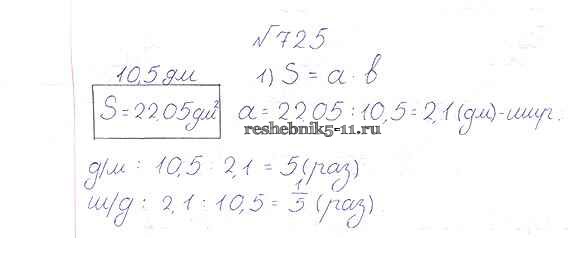 №725
10,5 дм 1) S = a · b
S = 22,05 дм² a = 22,05 : 10,5 = 2,1 (дм) - шир.
reshebnik5-11.ru
д/ш : 10,5 : 2,1 = 5 (раз)
ш/д : 2,1 : 10,5 = 1/5 (раз)